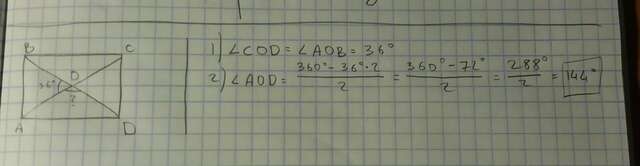 B C
O
36°
?
A D
1) ∠COD = ∠AOB = 36°
2) ∠AOD = (360° - 36° · 2)/2 = (360° - 72°)/2 = 288°/2 = 144°